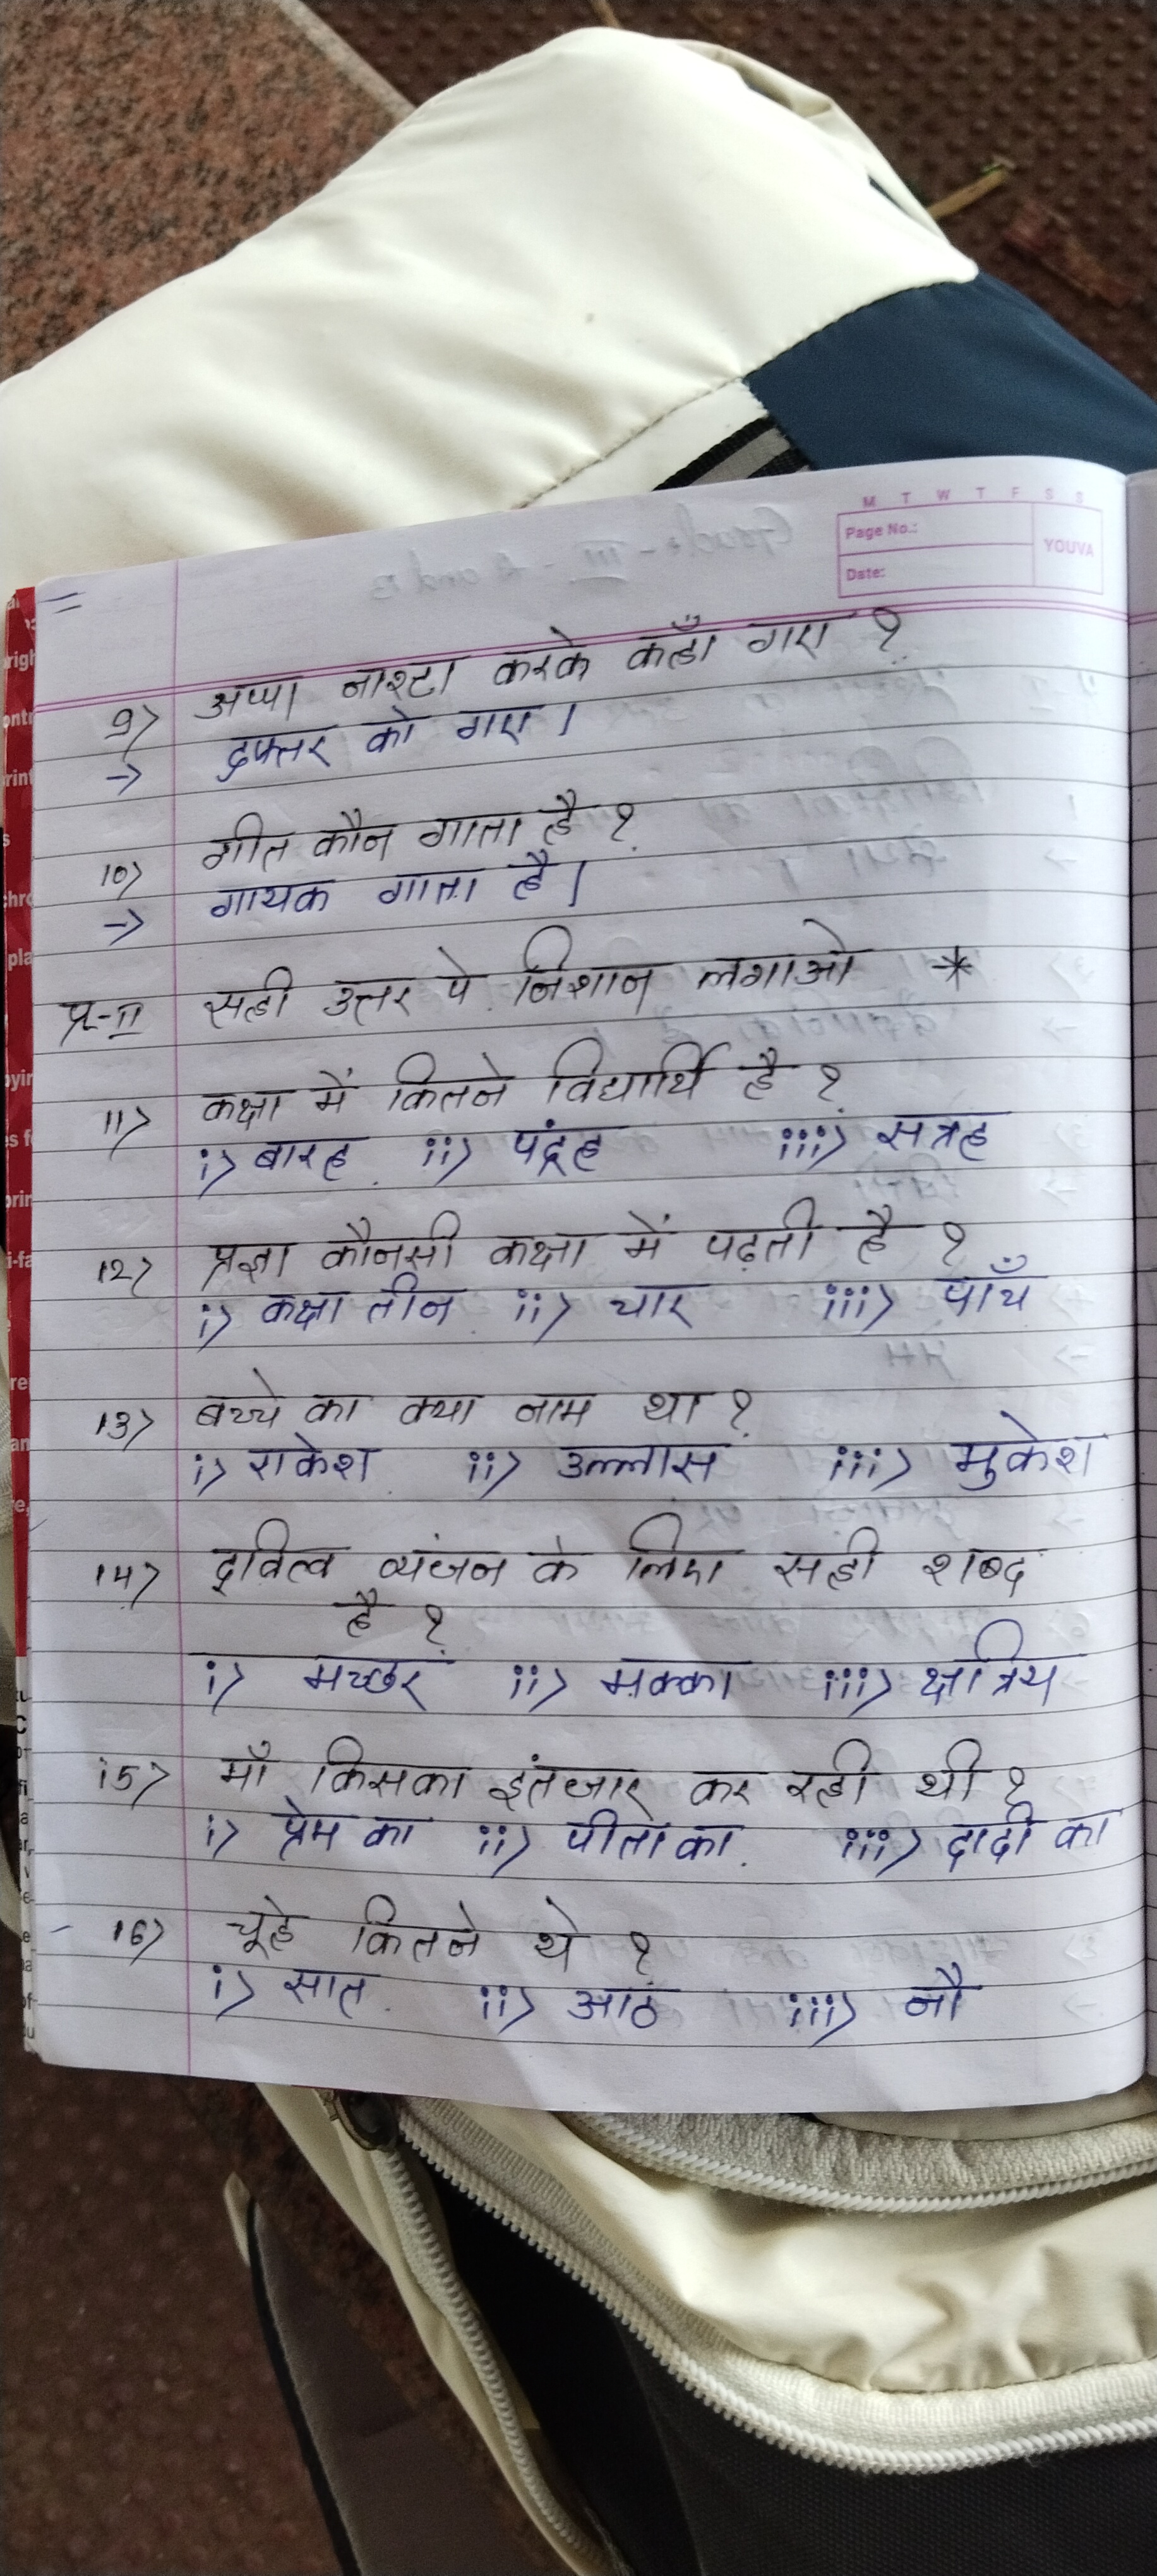 M T W T F S S
Page No.:
YOUVA
Date:
9> अप्पा नाश्टा करके कहाँ गए ?
-> दफ्तर को गए ।
10> गीत कौन गाता है ?
-> गायक गाता है ।
प्र-II सही उत्तर पे निशान लगाओ *
11> कक्षा में कितने विद्यार्थि है ?
i> बारह ii> पंद्रह iii> सत्रह
12> प्रज्ञा कौनसी कक्षा में पढ़ती है ?
i> कक्षा तीन ii> चार iii> पाँच
13> बच्चे का क्या नाम था ?
i> राकेश ii> उल्लास iii> मुकेश
14> द्वित्व व्यंजन के लिए सही शब्द
है ?
i> मच्छर ii> मक्का iii> क्षत्रिय
15> माँ किसका इंतजार कर रही थी ?
i> प्रेम का ii> पीता का iii> दादी का
16> चूहे कितने थे ?
i> सात ii> आठ iii> नौ